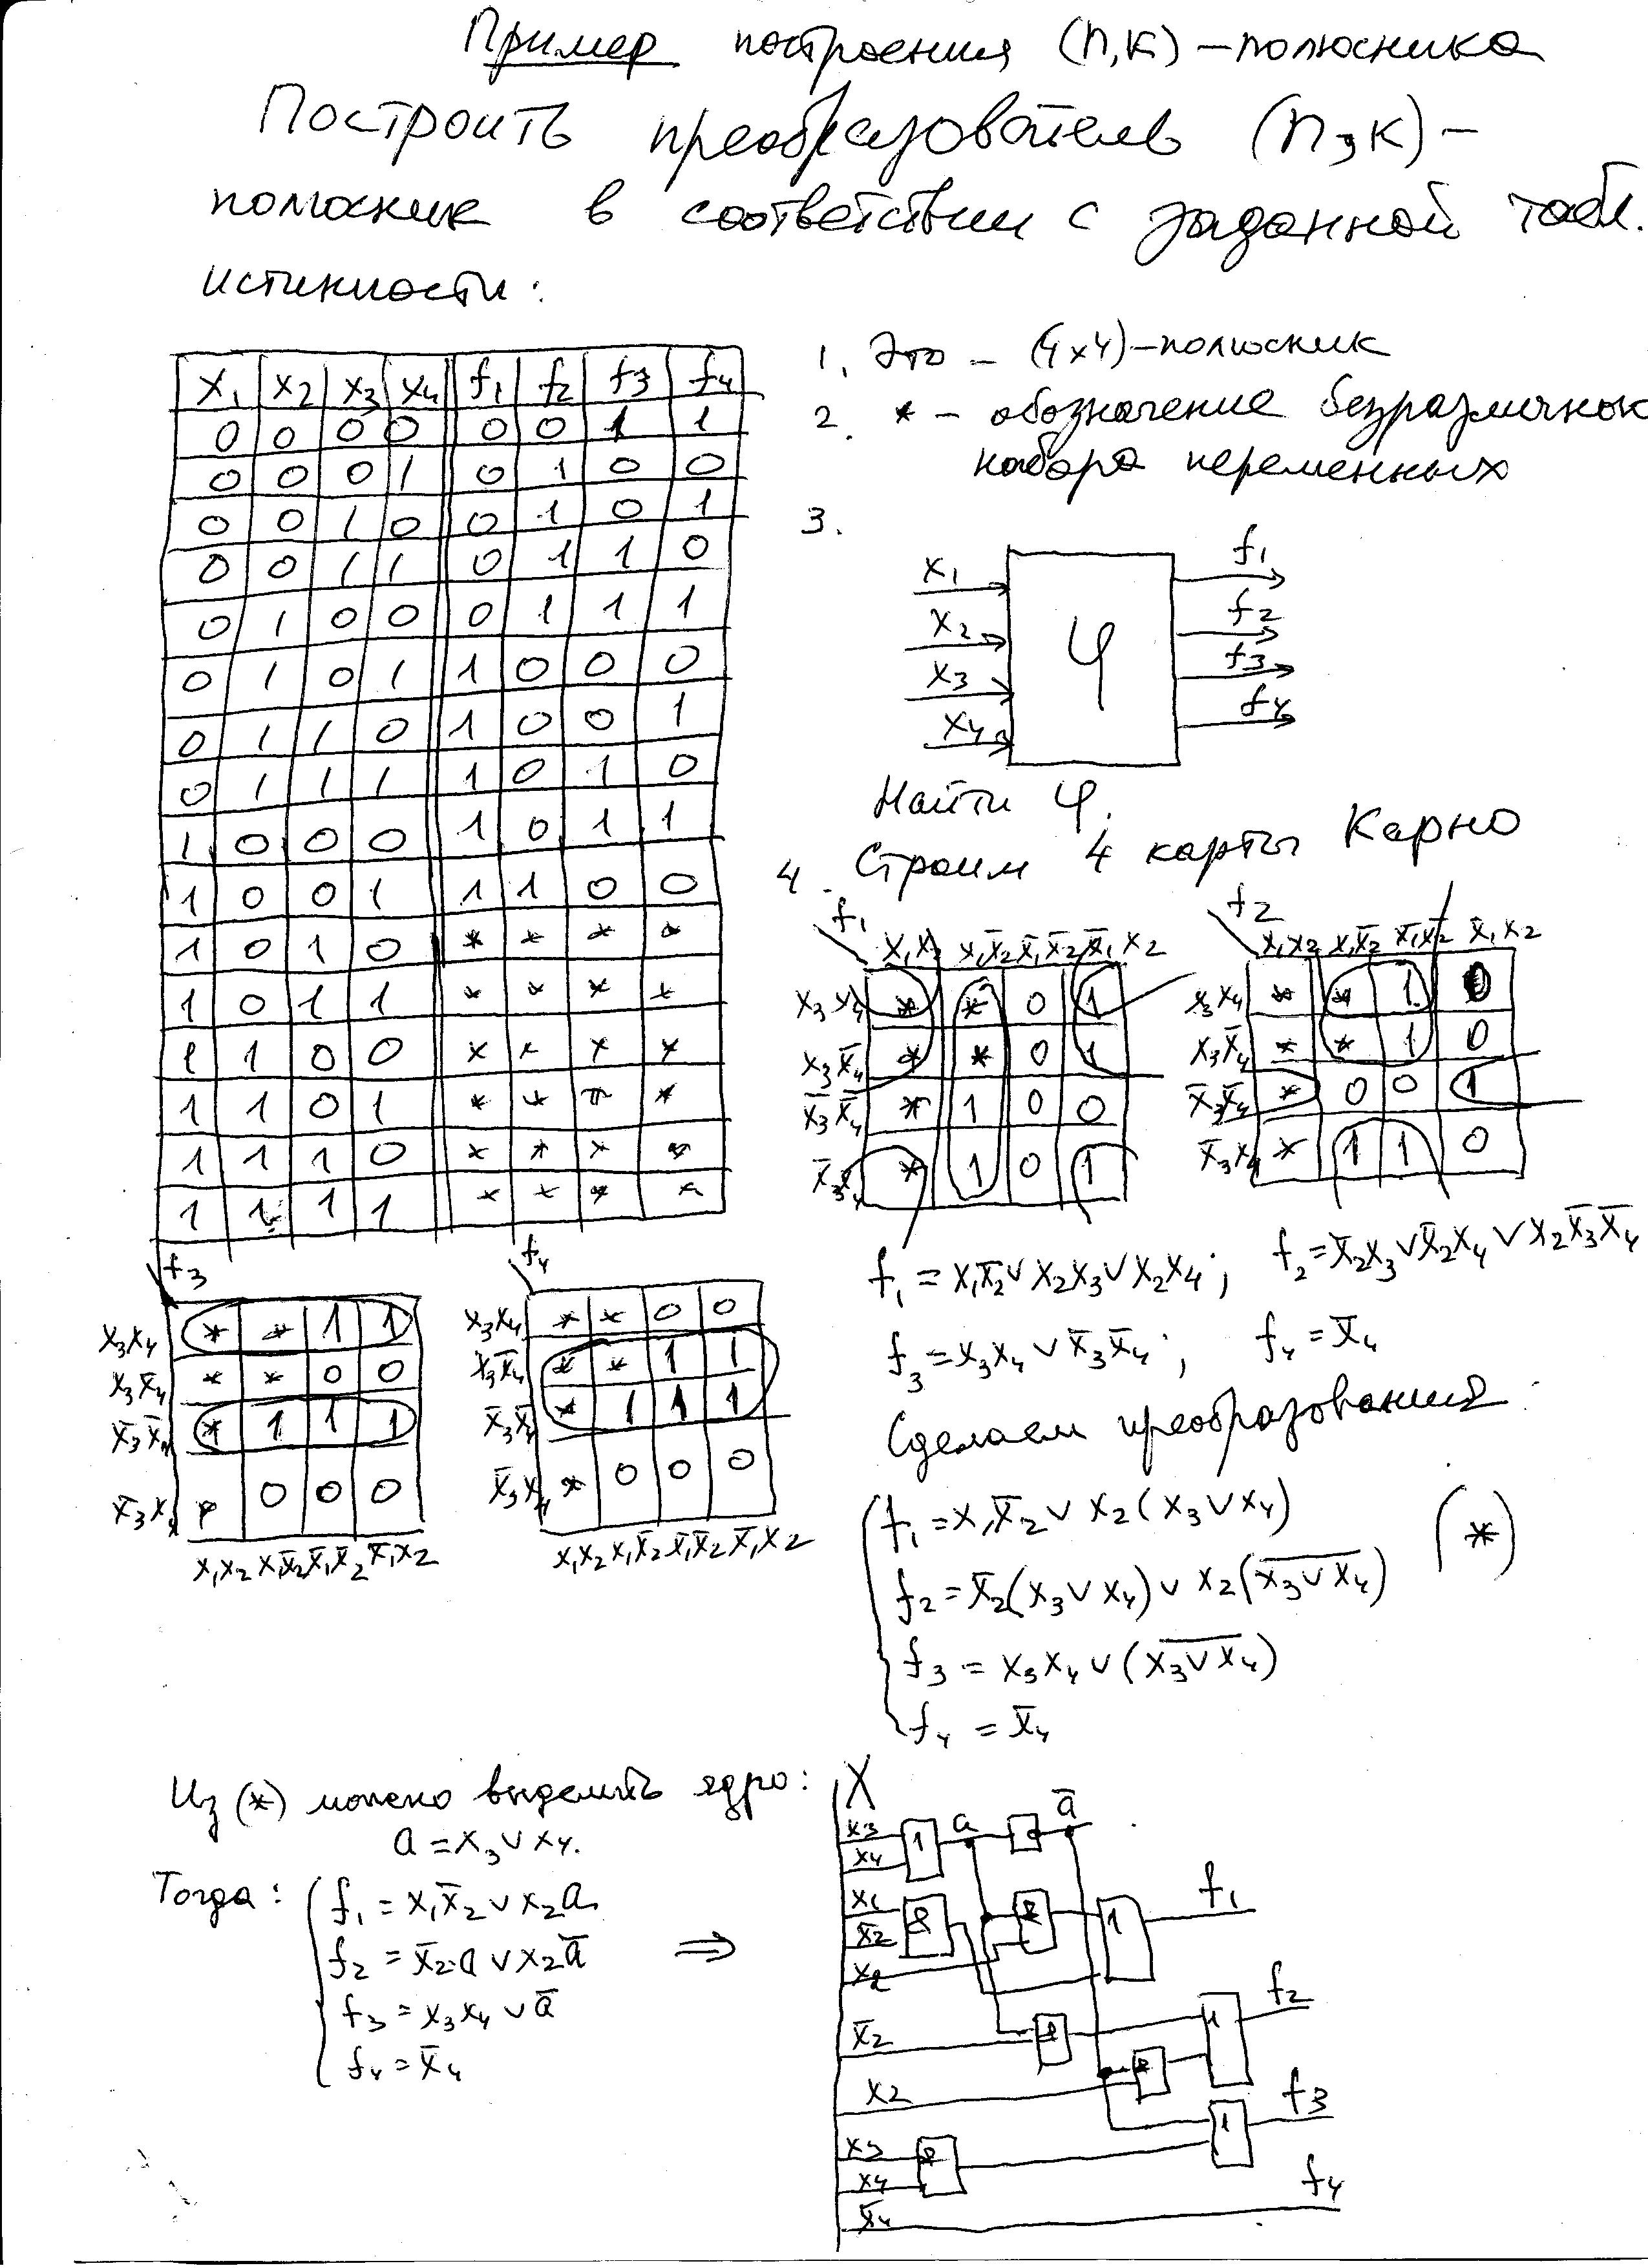 Пример построения (n,к)-полюсника
Построить преобразователь (n,к)-
полюсник в соответствии с заданной табл.
истинности:
x₁ x₂ x₃ x₄ f₁ f₂ f₃ f₄
0 0 0 0 0 0 1 1
0 0 0 1 0 1 0 0
0 0 1 0 0 1 0 1
0 0 1 1 0 1 1 0
0 1 0 0 0 1 1 1
0 1 0 1 1 0 0 0
0 1 1 0 1 0 0 1
0 1 1 1 1 0 1 0
1 0 0 0 1 0 1 1
1 0 0 1 1 1 0 0
1 0 1 0 * * * *
1 0 1 1 * * * *
1 1 0 0 * * * *
1 1 0 1 * * * *
1 1 1 0 * * * *
1 1 1 1 * * * *
1. Это – (4×4)-полюсник
2. * – обозначение безразличног
набора переменных
3.
x₁ f₁
x₂ φ f₂
x₃ f₃
x₄ f₄
Найти φ.
4. Строим 4 карты Карно
f₁
x₁x₂ x₁x̄₂ x̄₁x̄₂ x̄₁x₂
x₃x₄ * * 0 1
x₃x̄₄ * * 0 1
x̄₃x̄₄ * 1 0 0
x̄₃x₄ * 1 0 1
f₂
x₁x₂ x₁x̄₂ x̄₁x̄₂ x̄₁x₂
x₃x₄ * * 1 0
x₃x̄₄ * * 1 0
x̄₃x̄₄ * 0 0 1
x̄₃x₄ * 1 1 0
f₃
x₃x₄ * * 1 1
x₃x̄₄ * * 0 0
x̄₃x̄₄ * 1 1 1
x̄₃x₄ * 0 0 0
x₁x₂ x₁x̄₂ x̄₁x̄₂ x̄₁x₂
f₄
x₃x₄ * * 0 0
x₃x̄₄ * * 1 1
x̄₃x̄₄ * 1 1 1
x̄₃x₄ * 0 0 0
x₁x₂ x₁x̄₂ x̄₁x̄₂ x̄₁x₂
f₁ = x₁x̄₂ ∨ x₂x₃ ∨ x₂x₄; f₂ = x̄₂x₃ ∨ x̄₂x₄ ∨ x₂x̄₃x̄₄
f₃ = x₃x₄ ∨ x̄₃x̄₄; f₄ = x̄₄
Сделаем преобразования:
f₁ = x₁x̄₂ ∨ x₂(x₃ ∨ x₄) (*)
f₂ = x̄₂(x₃ ∨ x₄) ∨ x₂(x̅₃̅ ̅∨̅ ̅x̅₄̅)
f₃ = x₃x₄ ∨ (x̅₃̅ ̅∨̅ ̅x̅₄̅)
f₄ = x̄₄
Из (*) можно выделить ядро:
a = x₃ ∨ x₄.
Тогда: f₁ = x₁x̄₂ ∨ x₂a
f₂ = x̄₂a ∨ x₂ā ⇒
f₃ = x₃x₄ ∨ ā
f₄ = x̄₄
X
x₃ 1 a ā
x₄
x₁ & & 1 f₁
x̄₂
x₂
x̄₂ & 1 f₂
x₂ &
x₃ & 1 f₃
x₄
x̄₄ f₄